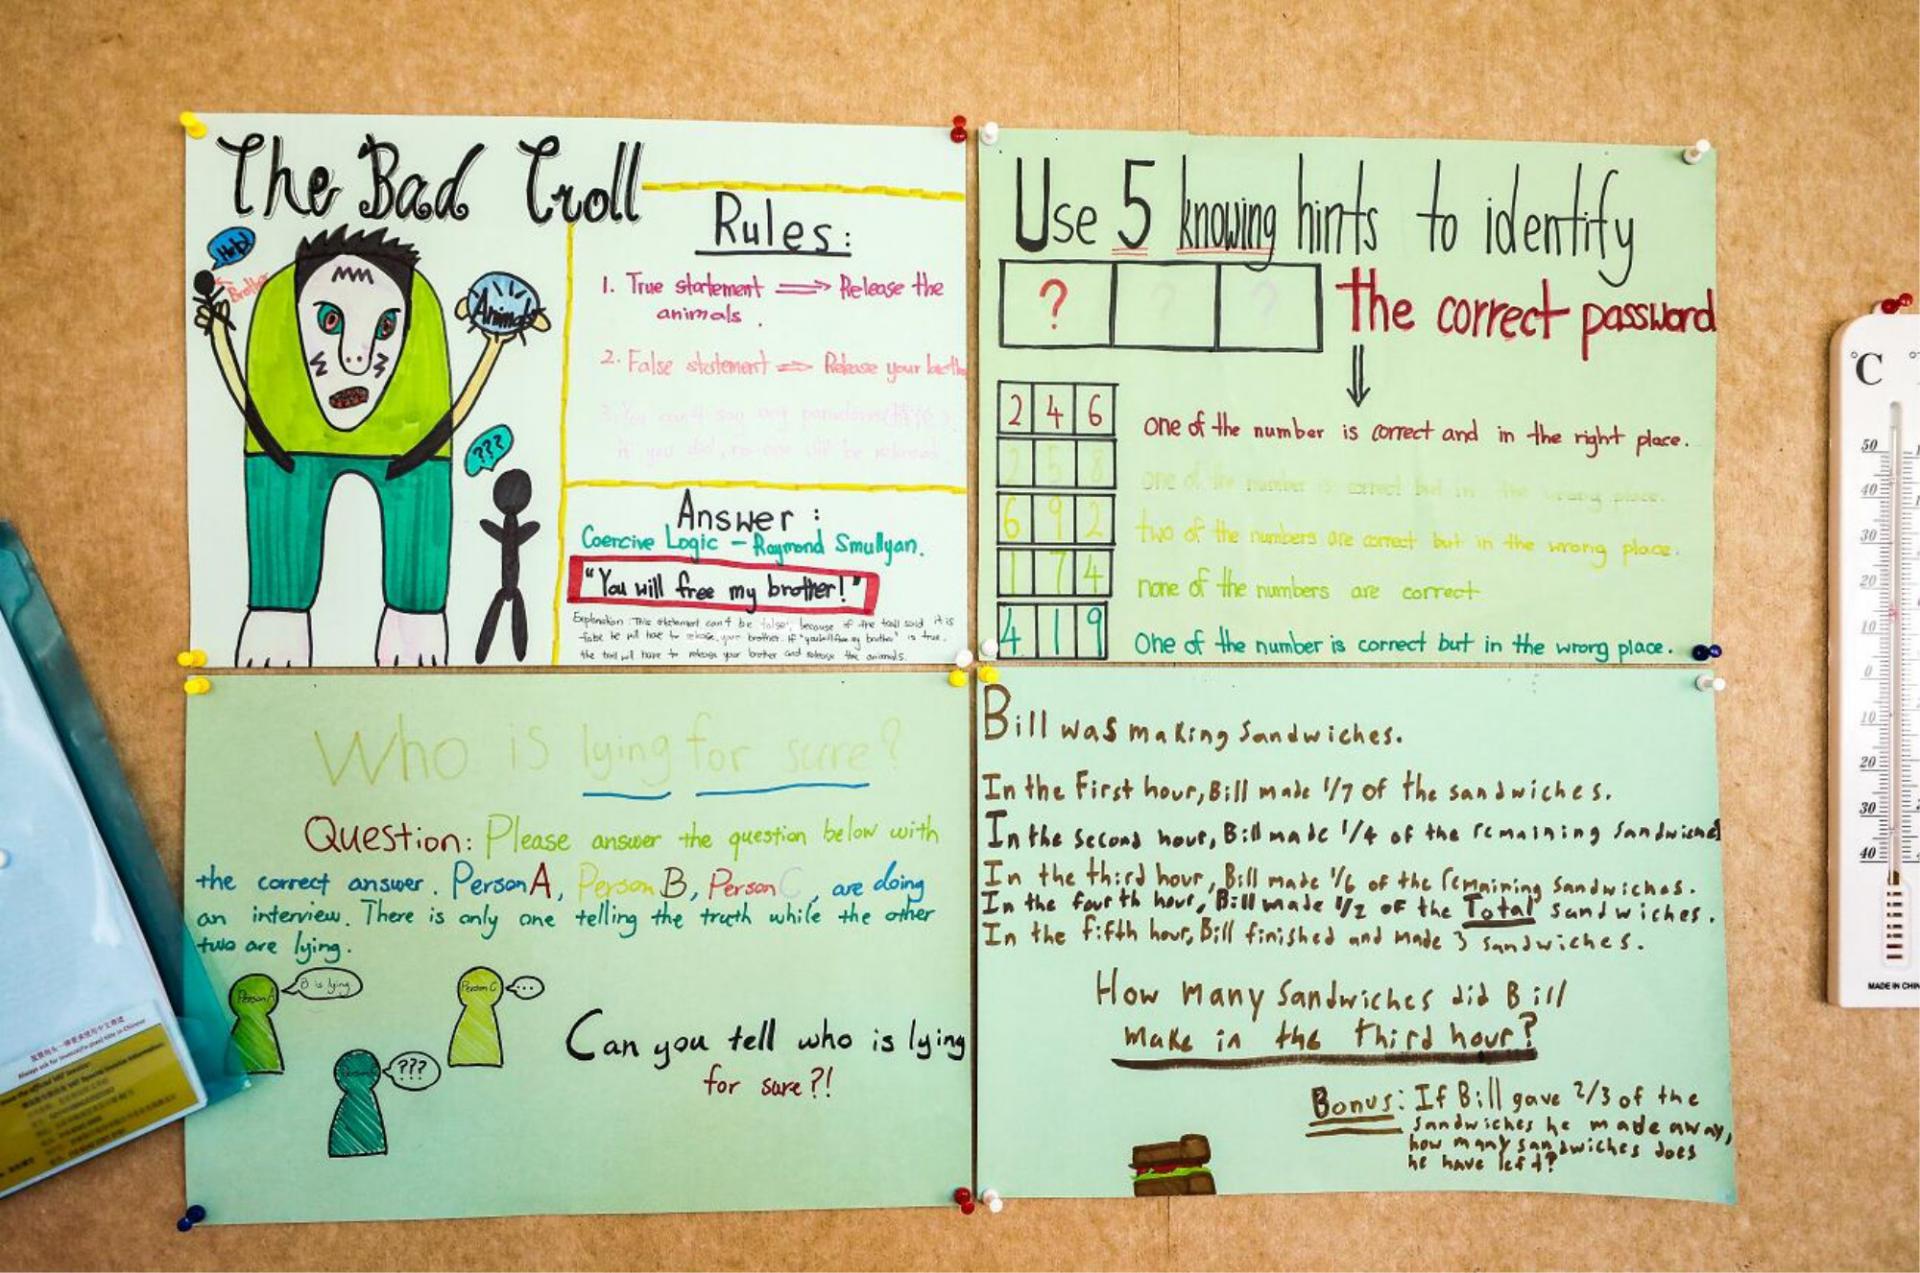 The Bad Troll
Help!
Brother
Animals
???
Rules:
1. True statement ⇒ Release the
animals.
2. False statement ⇒ Release your
3. You can't say any
Answer:
Coercive Logic - Raymond Smullyan.
"You will free my brother!"
Explanation: This statement can't be false, because if the troll said it is
false he will have to release your brother. If "you will free my brother" is true,
the troll will have to release your brother and release the animals.
Use 5 knowing hints to identify
? ? ? the correct password
2 4 6 one of the number is correct and in the right place.
2 5 8 one of the number is correct but in the wrong place.
6 9 2 two of the numbers are correct but in the wrong place.
1 7 4 none of the numbers are correct
4 1 9 One of the number is correct but in the wrong place.
Who is lying for sure?
Question: Please answer the question below with
the correct answer. Person A, Person B, Person C, are doing
an interview. There is only one telling the truth while the other
two are lying.
Person A
B is lying
Person C
...
???
Can you tell who is lying
for sure?!
Bill was making Sandwiches.
In the First hour, Bill made 1/7 of the sandwiches.
In the second hour, Bill made 1/4 of the remaining sandwiches
In the third hour, Bill made 1/6 of the remaining sandwiches.
In the fourth hour, Bill made 1/2 of the Total sandwiches.
In the fifth hour, Bill finished and made 3 sandwiches.
How Many Sandwiches did Bill
make in the third hour?
Bonus: If Bill gave 2/3 of the
sandwiches he made away,
how many sandwiches does
he have left?
°C
50
40
30
20
10
0
10
20
30
40
MADE IN